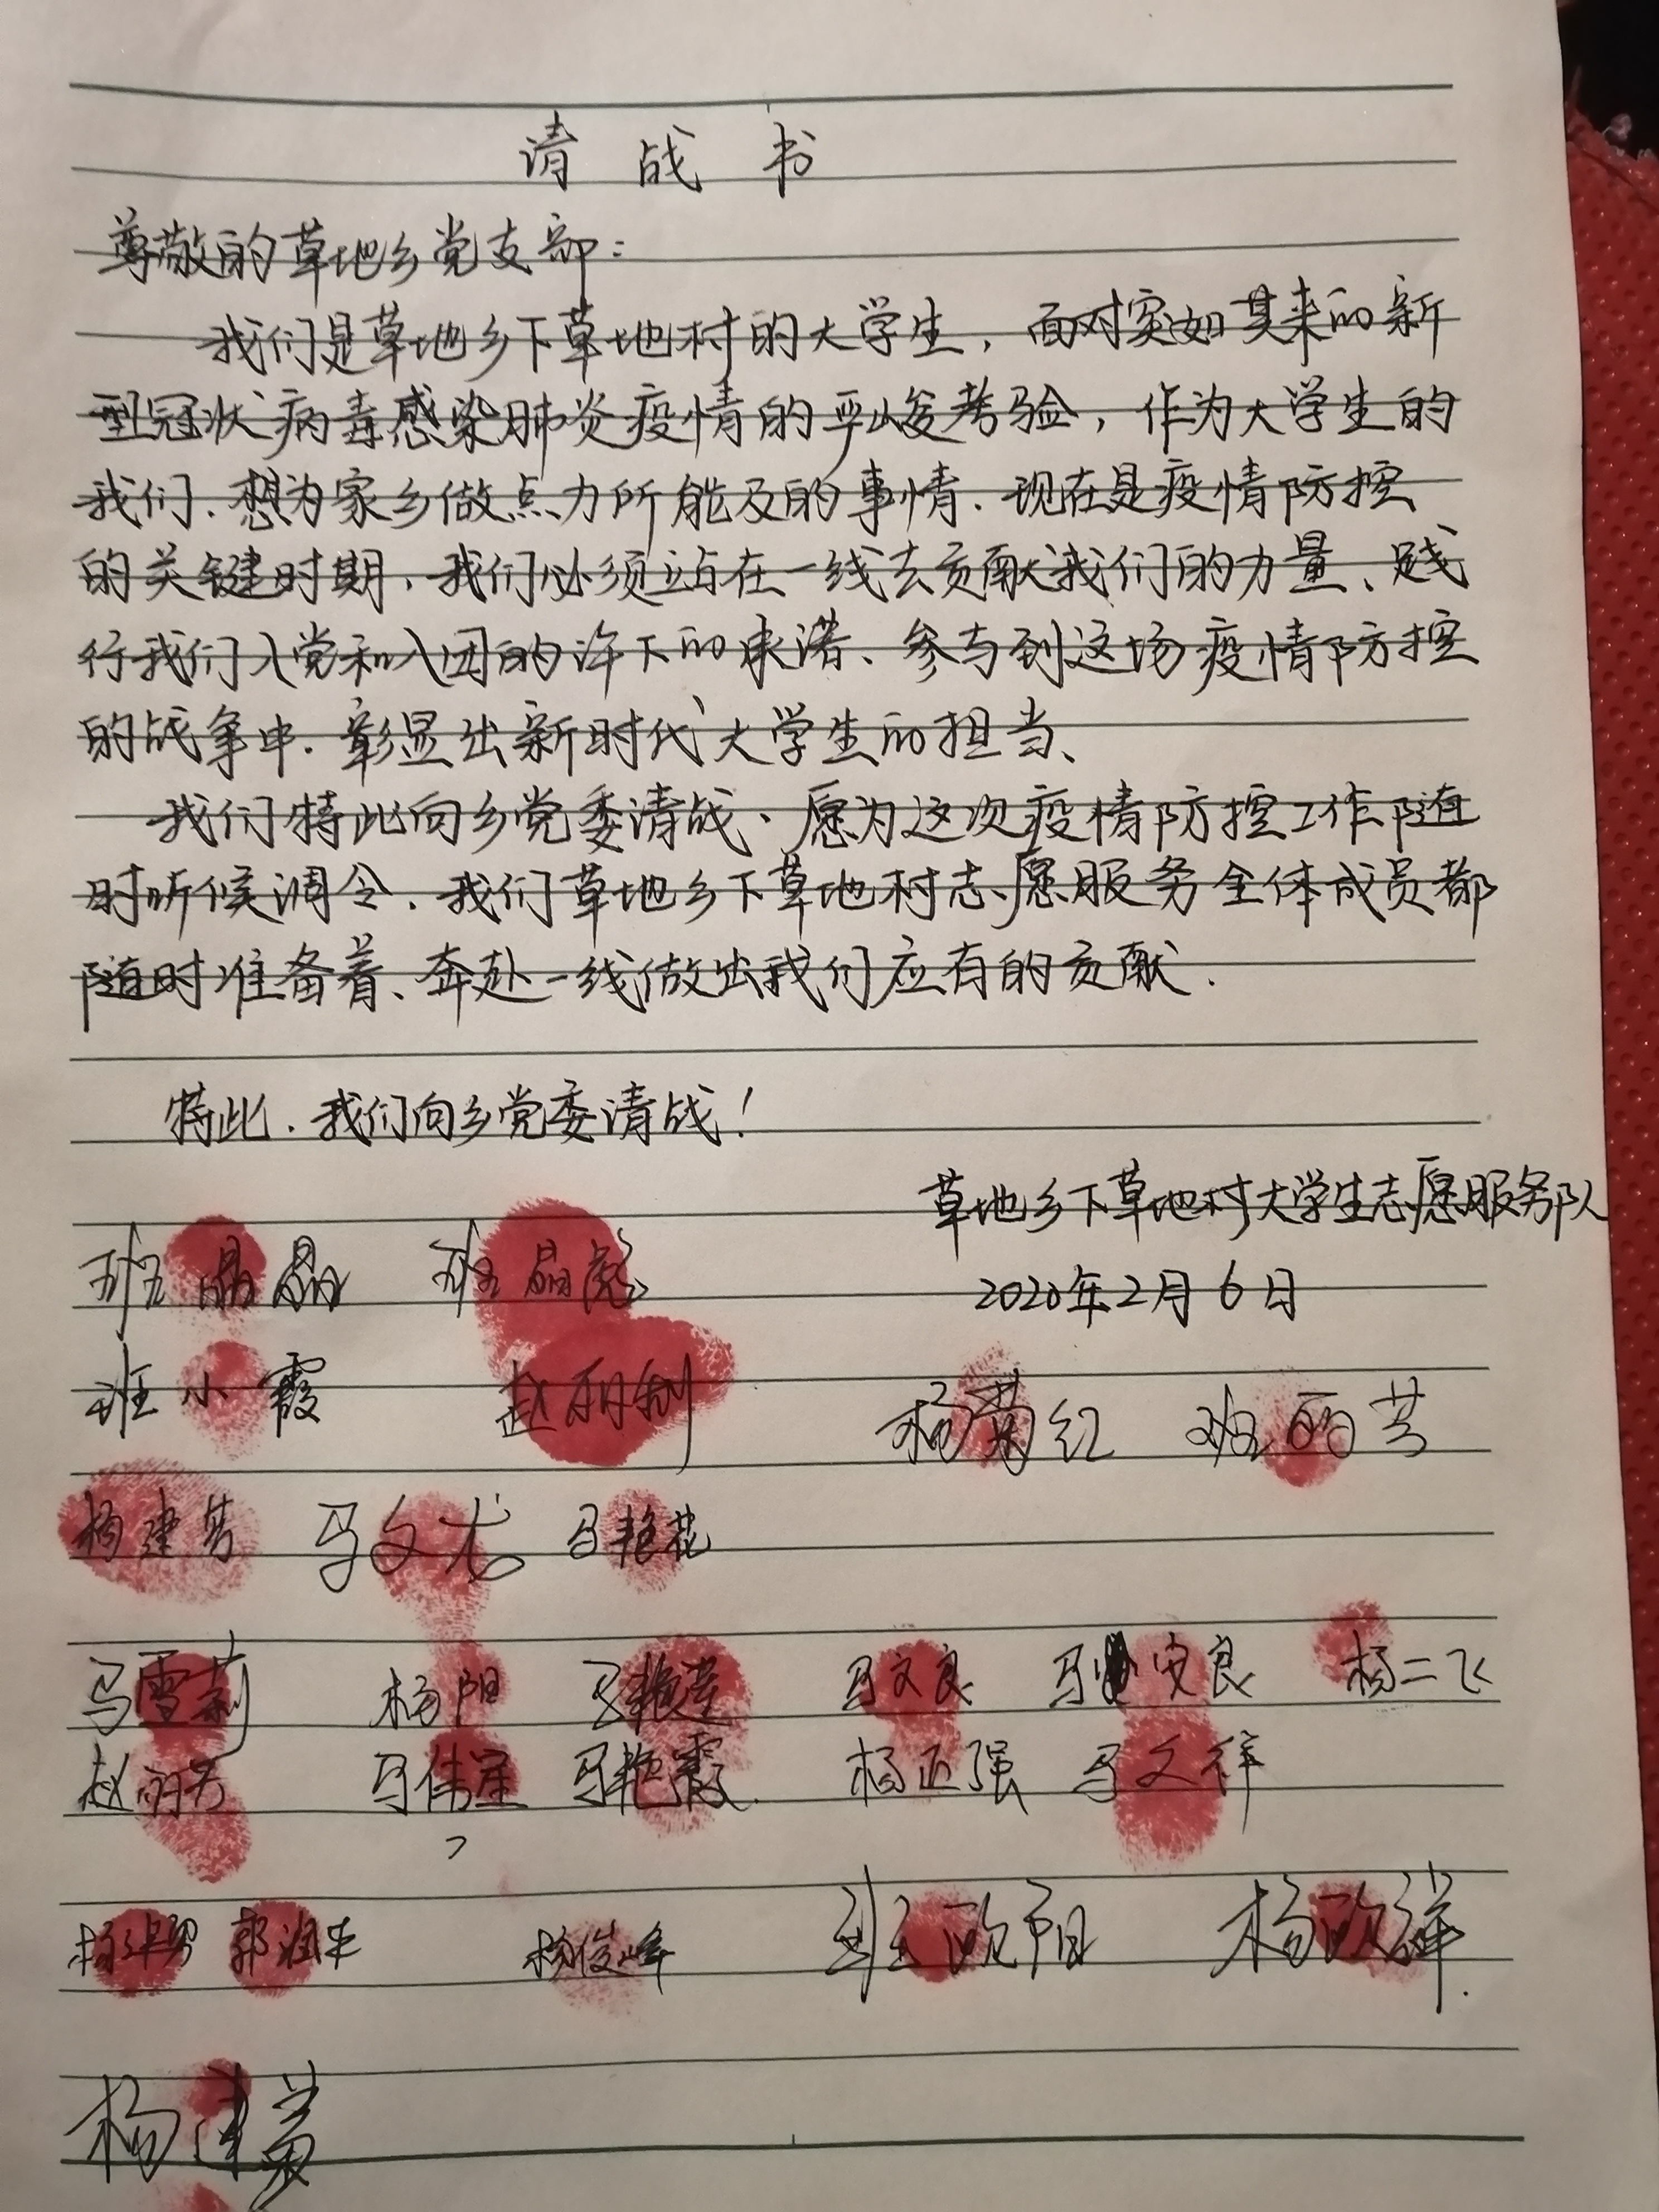 请战书
尊敬的草地乡党支部：
我们是草地乡下草地村的大学生，面对突如其来的新
型冠状病毒感染肺炎疫情的严峻考验，作为大学生的
我们、想为家乡做点力所能及的事情．现在是疫情防控
的关键时期，我们必须站在一线去贡献我们的力量、践
行我们入党和入团的许下的承诺、参与到这场疫情防控
的战争中．彰显出新时代大学生的担当、
我们特此向乡党委请战、愿为这次疫情防控工作随
时听候调令．我们草地乡下草地村志愿服务全体成员都
随时准备着、奔赴一线做出我们应有的贡献．
特此．我们向乡党委请战！
草地乡下草地村大学生志愿服务队
班晶晶 班晶彪
2020年2月6日
班小霞 赵丽钊
杨菊红 班丽芳
杨建芳 马文龙 马艳花
马雪莉 杨阳 马艳莲 马文良 马安良 杨二飞
赵丽芳 马伟星 马艳霞 杨正强 马文祥
杨俊峰 班欧阳 杨欧祥